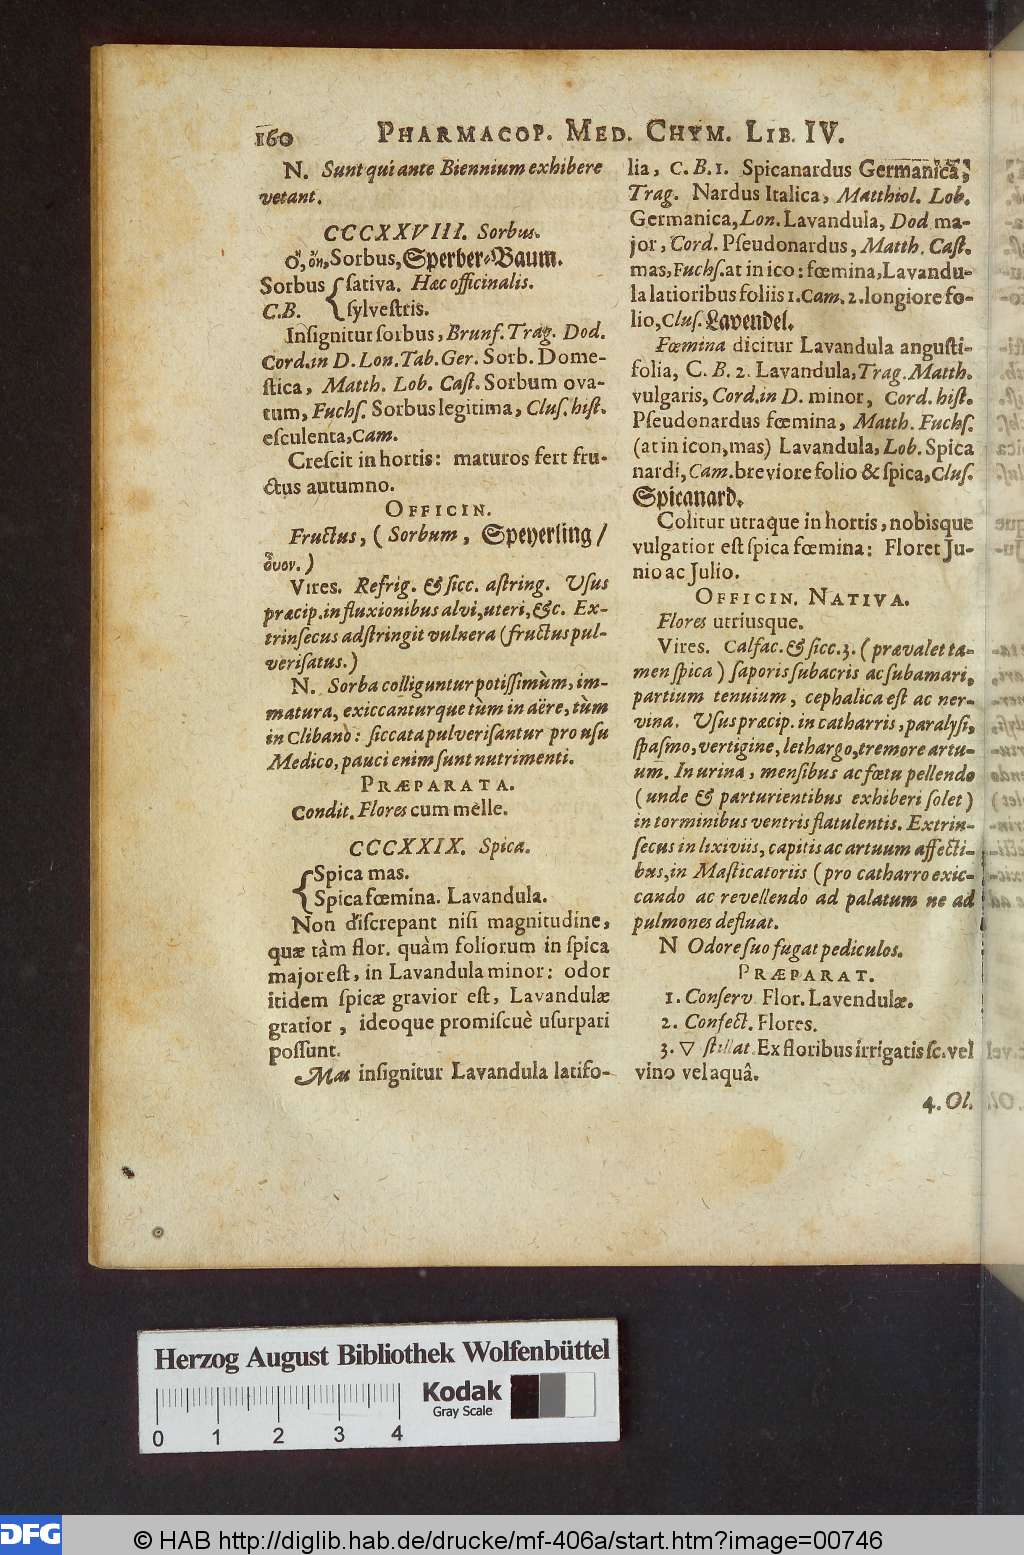 160 PHARMACOP. MED. CHYM. LIB. IV.
N. Sunt qui ante Biennium exhibere
vetant.
CCCXXVIII. Sorbus.
Sorbus, Sperber-Baum.
Sorbus { sativa. Hæc officinalis.
C.B. { sylvestris.
Insignitur sorbus, Brunf. Trag. Dod.
Cord. in D. Lon. Tab. Ger. Sorb. Dome-
stica, Matth. Lob. Cast. Sorbum ova-
tum, Fuchs. Sorbus legitima, Clus. hist.
esculenta, Cam.
Crescit in hortis: maturos fert fru-
ctus autumno.
OFFICIN.
Fructus, (Sorbum, Speyerling/
ὄυον.)
Vires. Refrig. & sicc. astring. Usus
præcip. in fluxionibus alvi, uteri, &c. Ex-
trinsecus adstringit vulnera (fructus pul-
verisatus.)
N. Sorba colliguntur potissimùm, im-
matura, exiccanturque tùm in aëre, tùm
in Clibano: siccata pulverisantur pro usu
Medico, pauci enim sunt nutrimenti.
PRÆPARATA.
Condit. Flores cum melle.
CCCXXIX. Spica.
{ Spica mas.
{ Spica fœmina. Lavandula.
Non discrepant nisi magnitudine,
quæ tàm flor. quàm foliorum in spica
major est, in Lavandula minor: odor
itidem spicæ gravior est, Lavandulæ
gratior, ideoque promiscuè usurpari
possunt.
Mas insignitur Lavandula latifo-
lia, C. B. 1. Spicanardus Germanica,
Trag. Nardus Italica, Matthiol. Lob.
Germanica, Lon. Lavandula, Dod ma-
jor, Cord. Pseudonardus, Matth. Cast.
mas, Fuchs. at in ico: fœmina, Lavandu-
la latioribus foliis 1. Cam. 2. longiore fo-
lio, Clus. Lavendel.
Fœmina dicitur Lavandula angusti-
folia, C. B. 2. Lavandula, Trag. Matth.
vulgaris, Cord. in D. minor, Cord. hist.
Pseudonardus fœmina, Matth. Fuchs.
(at in icon, mas) Lavandula, Lob. Spica
nardi, Cam. breviore folio & spica, Clus.
Spicanard.
Colitur utraque in hortis, nobisque
vulgatior est spica fœmina: Floret Ju-
nio ac Julio.
OFFICIN. NATIVA.
Flores utriusque.
Vires. Calfac. & sicc. 3. (prævalet ta-
men spica) saporis subacris ac subamari,
partium tenuium, cephalica est ac ner-
vina. Usus præcip. in catharris, paralysi,
spasmo, vertigine, lethargo, tremore artu-
um. In urina, mensibus ac fœtu pellendo
(unde & parturientibus exhiberi solet)
in torminibus ventris flatulentis. Extrin-
secus in lixiviis, capitis ac artuum affecti-
bus, in Masticatoriis (pro catharro exic-
cando ac revellendo ad palatum ne ad
pulmones defluat.
N Odore suo fugat pediculos.
PRÆPARAT.
1. Conserv Flor. Lavendulæ.
2. Confect. Flores.
3. ▽ stillat. Ex floribus irrigatis sc. vel
vino vel aquâ.
4. Ol.
Herzog August Bibliothek Wolfenbüttel
Kodak
Gray Scale
0 1 2 3 4
DFG
© HAB http://diglib.hab.de/drucke/mf-406a/start.htm?image=00746